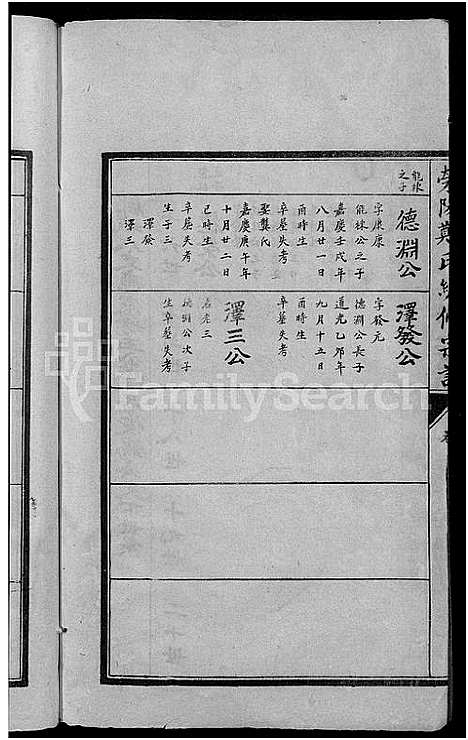 滎陽鄭氏續修宗譜
能徠之子
德淵公
字康康
能徠公之子
嘉慶壬戌年
八月廿一日
酉時生
卒墓失考
娶龔氏
嘉慶庚午年
十月廿二日
巳時生
卒墓失考
生子三
澤發
澤三
澤發公
字發元
德淵公長子
道光乙卯年
九月十五日
酉時生
卒墓失考
澤三公
名老三
德淵公次子
生卒墓失考
FamilySearch